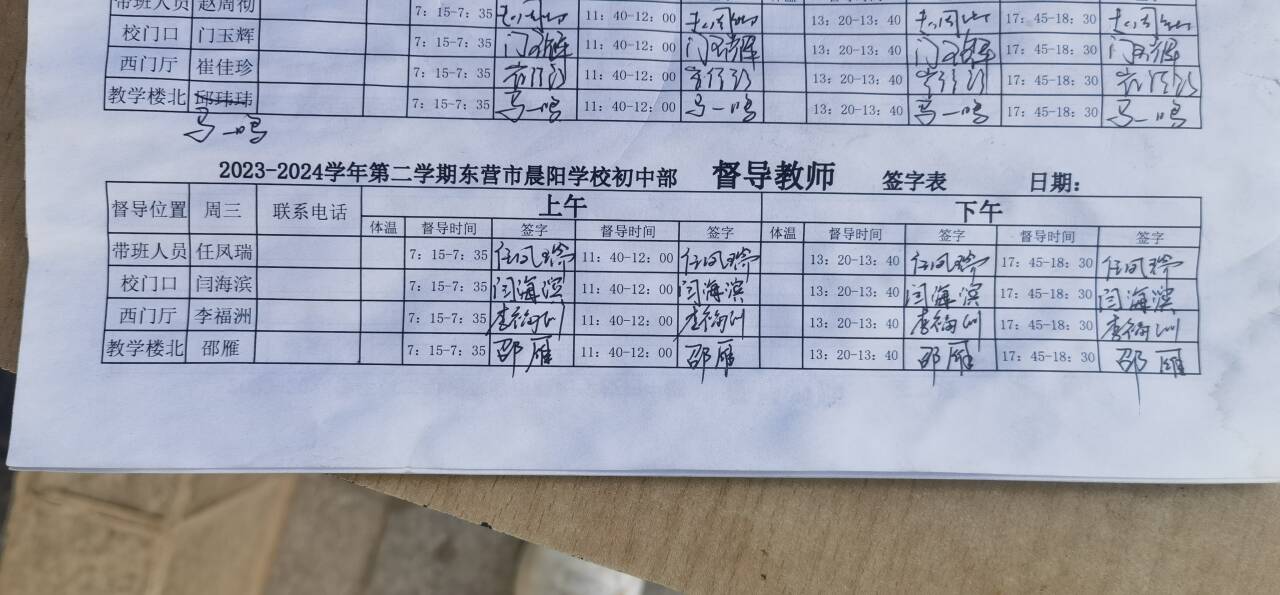 带班人员 赵周彻 7：15-7：35 赵周彻 11：40-12：00 赵周彻 13：20-13：40 赵周彻 17：45-18：30 赵周彻
校门口 门玉辉 7：15-7：35 门玉辉 11：40-12：00 门玉辉 13：20-13：40 门玉辉 17：45-18：30 门玉辉
西门厅 崔佳珍 7：15-7：35 崔佳珍 11：40-12：00 崔佳珍 13：20-13：40 崔佳珍 17：45-18：30 崔佳珍
教学楼北 邱玮玮 7：15-7：35 马一鸣 11：40-12：00 马一鸣 13：20-13：40 马一鸣 17：45-18：30 马一鸣
马一鸣
2023-2024学年第二学期东营市晨阳学校初中部 督导教师 签字表 日期：
督导位置 周三 联系电话 上午 下午
体温 督导时间 签字 督导时间 签字 体温 督导时间 签字 督导时间 签字
带班人员 任凤瑞 7：15-7：35 任凤瑞 11：40-12：00 任凤瑞 13：20-13：40 任凤瑞 17：45-18：30 任凤瑞
校门口 闫海滨 7：15-7：35 闫海滨 11：40-12：00 闫海滨 13：20-13：40 闫海滨 17：45-18：30 闫海滨
西门厅 李福洲 7：15-7：35 李福洲 11：40-12：00 李福洲 13：20-13：40 李福洲 17：45-18：30 李福洲
教学楼北 邵雁 7：15-7：35 邵雁 11：40-12：00 邵雁 13：20-13：40 邵雁 17：45-18：30 邵雁